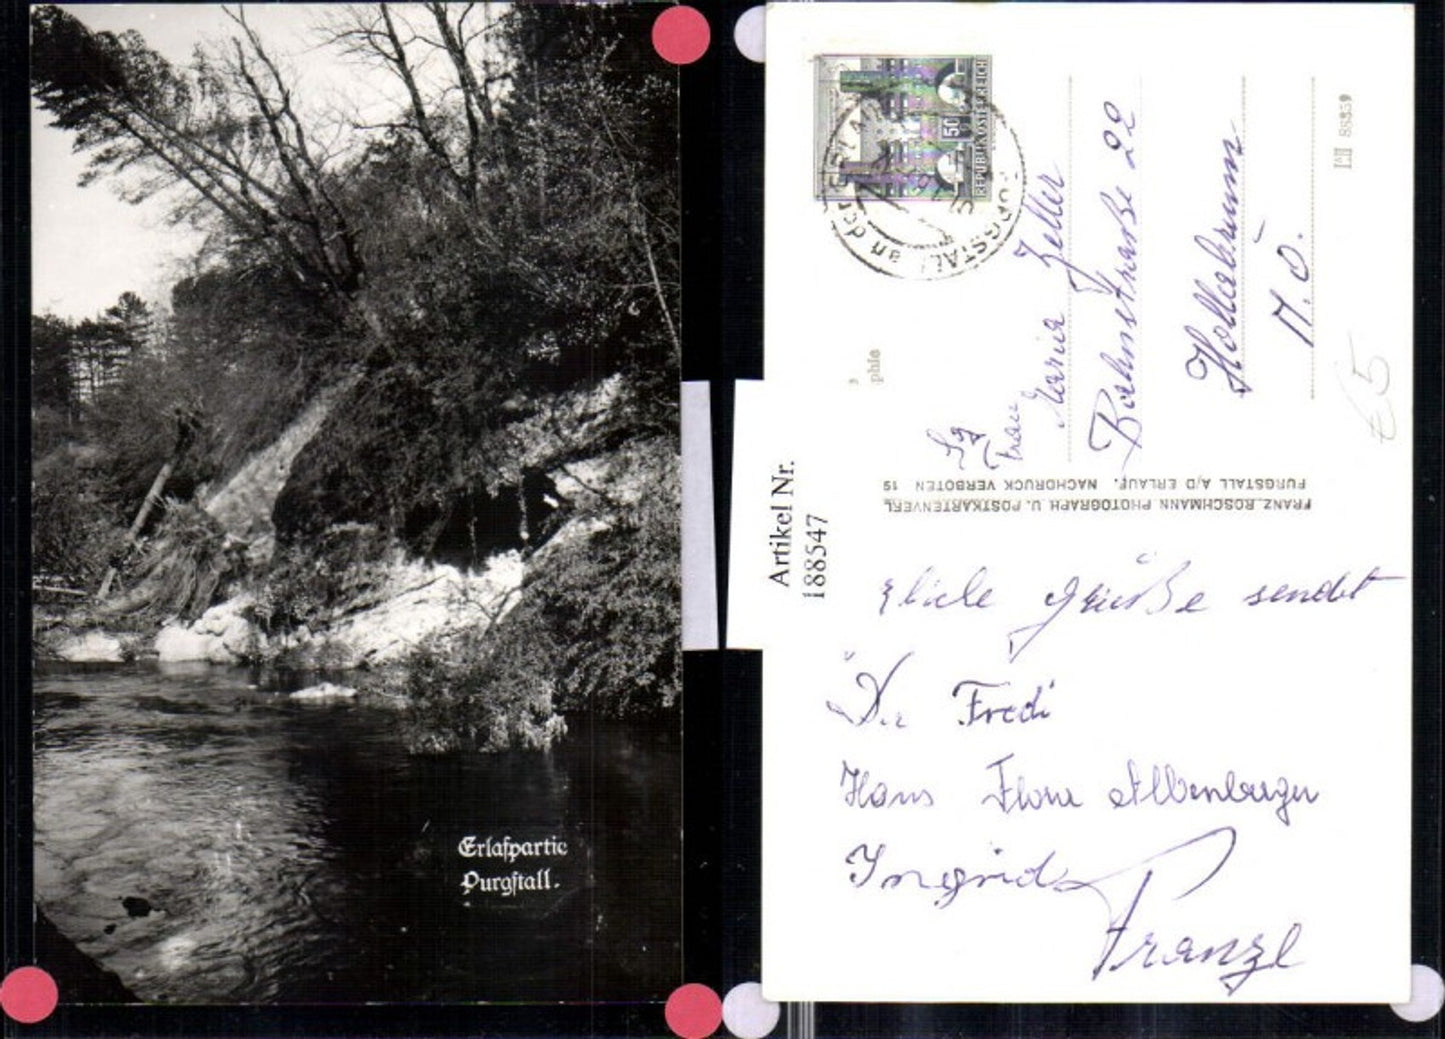 Erlafpartie
Purgstall.
Artikel Nr.
188547
REPUBLIK ÖSTERREICH
50
PURGSTALL an der ERLAF
Frau
Maria Zeller
Bahnstraße 22
Hollabrunn
N.Ö.
88859
€5
FRANZ BOSCHMANN PHOTOGRAPH U. POSTKARTENVERL
PURGSTALL A/D ERLAUF. NACHDRUCK VERBOTEN 19
Grüße sendet
Fredi
Hans
Ingrid
Franzl